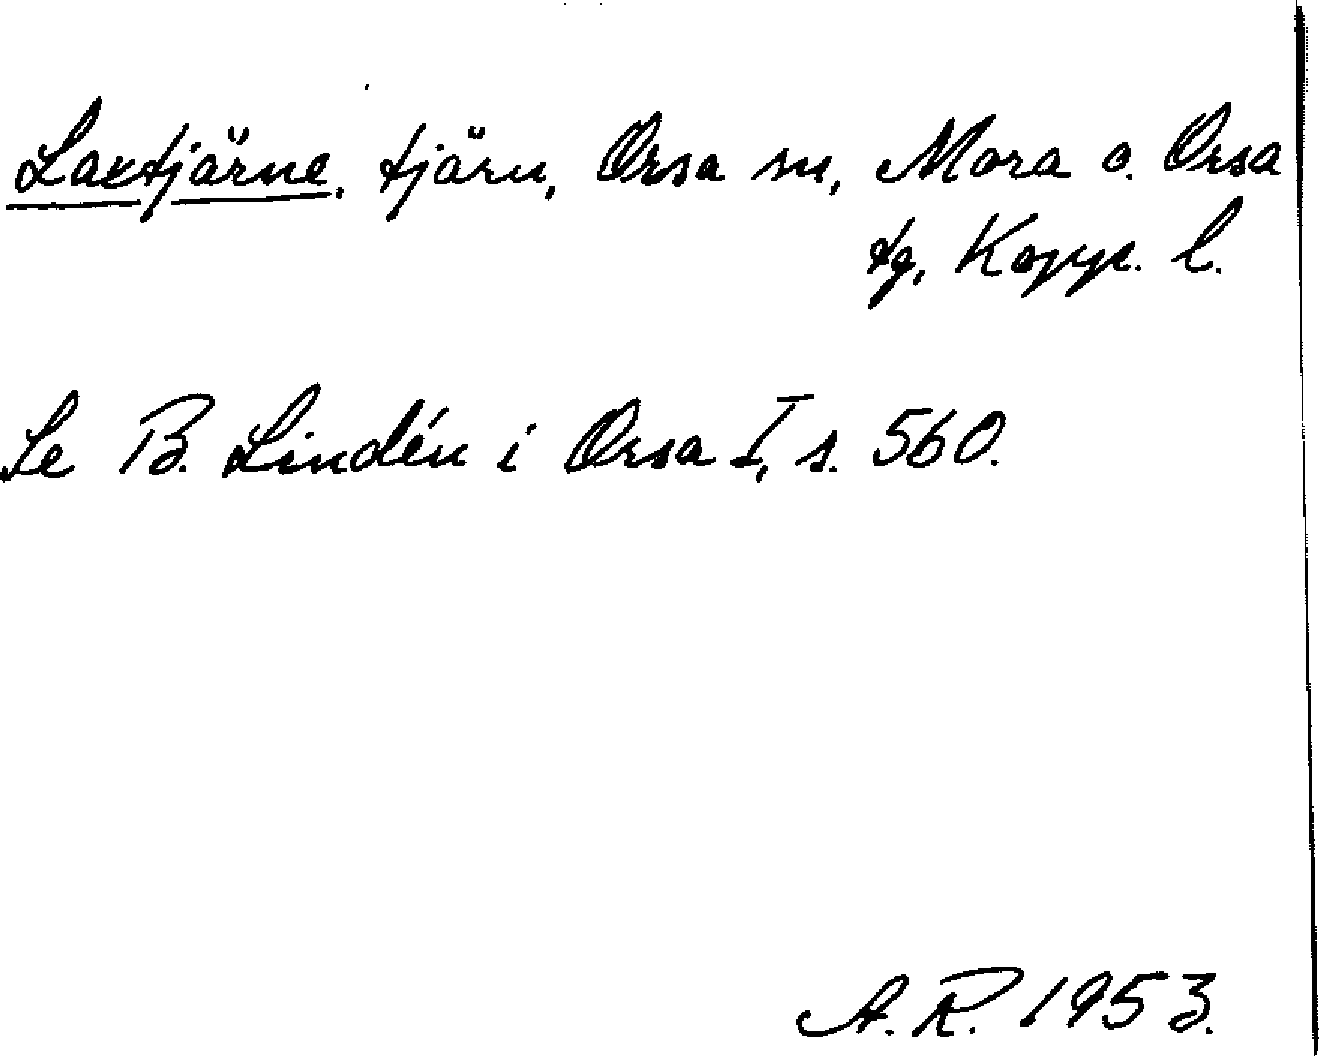 Laxtjärne, tjärn, Orsa sn, Mora o. Orsa
tg, Kopp. l.
Se B. Lindén i Orsa I, s. 560.
A. R. 1953.